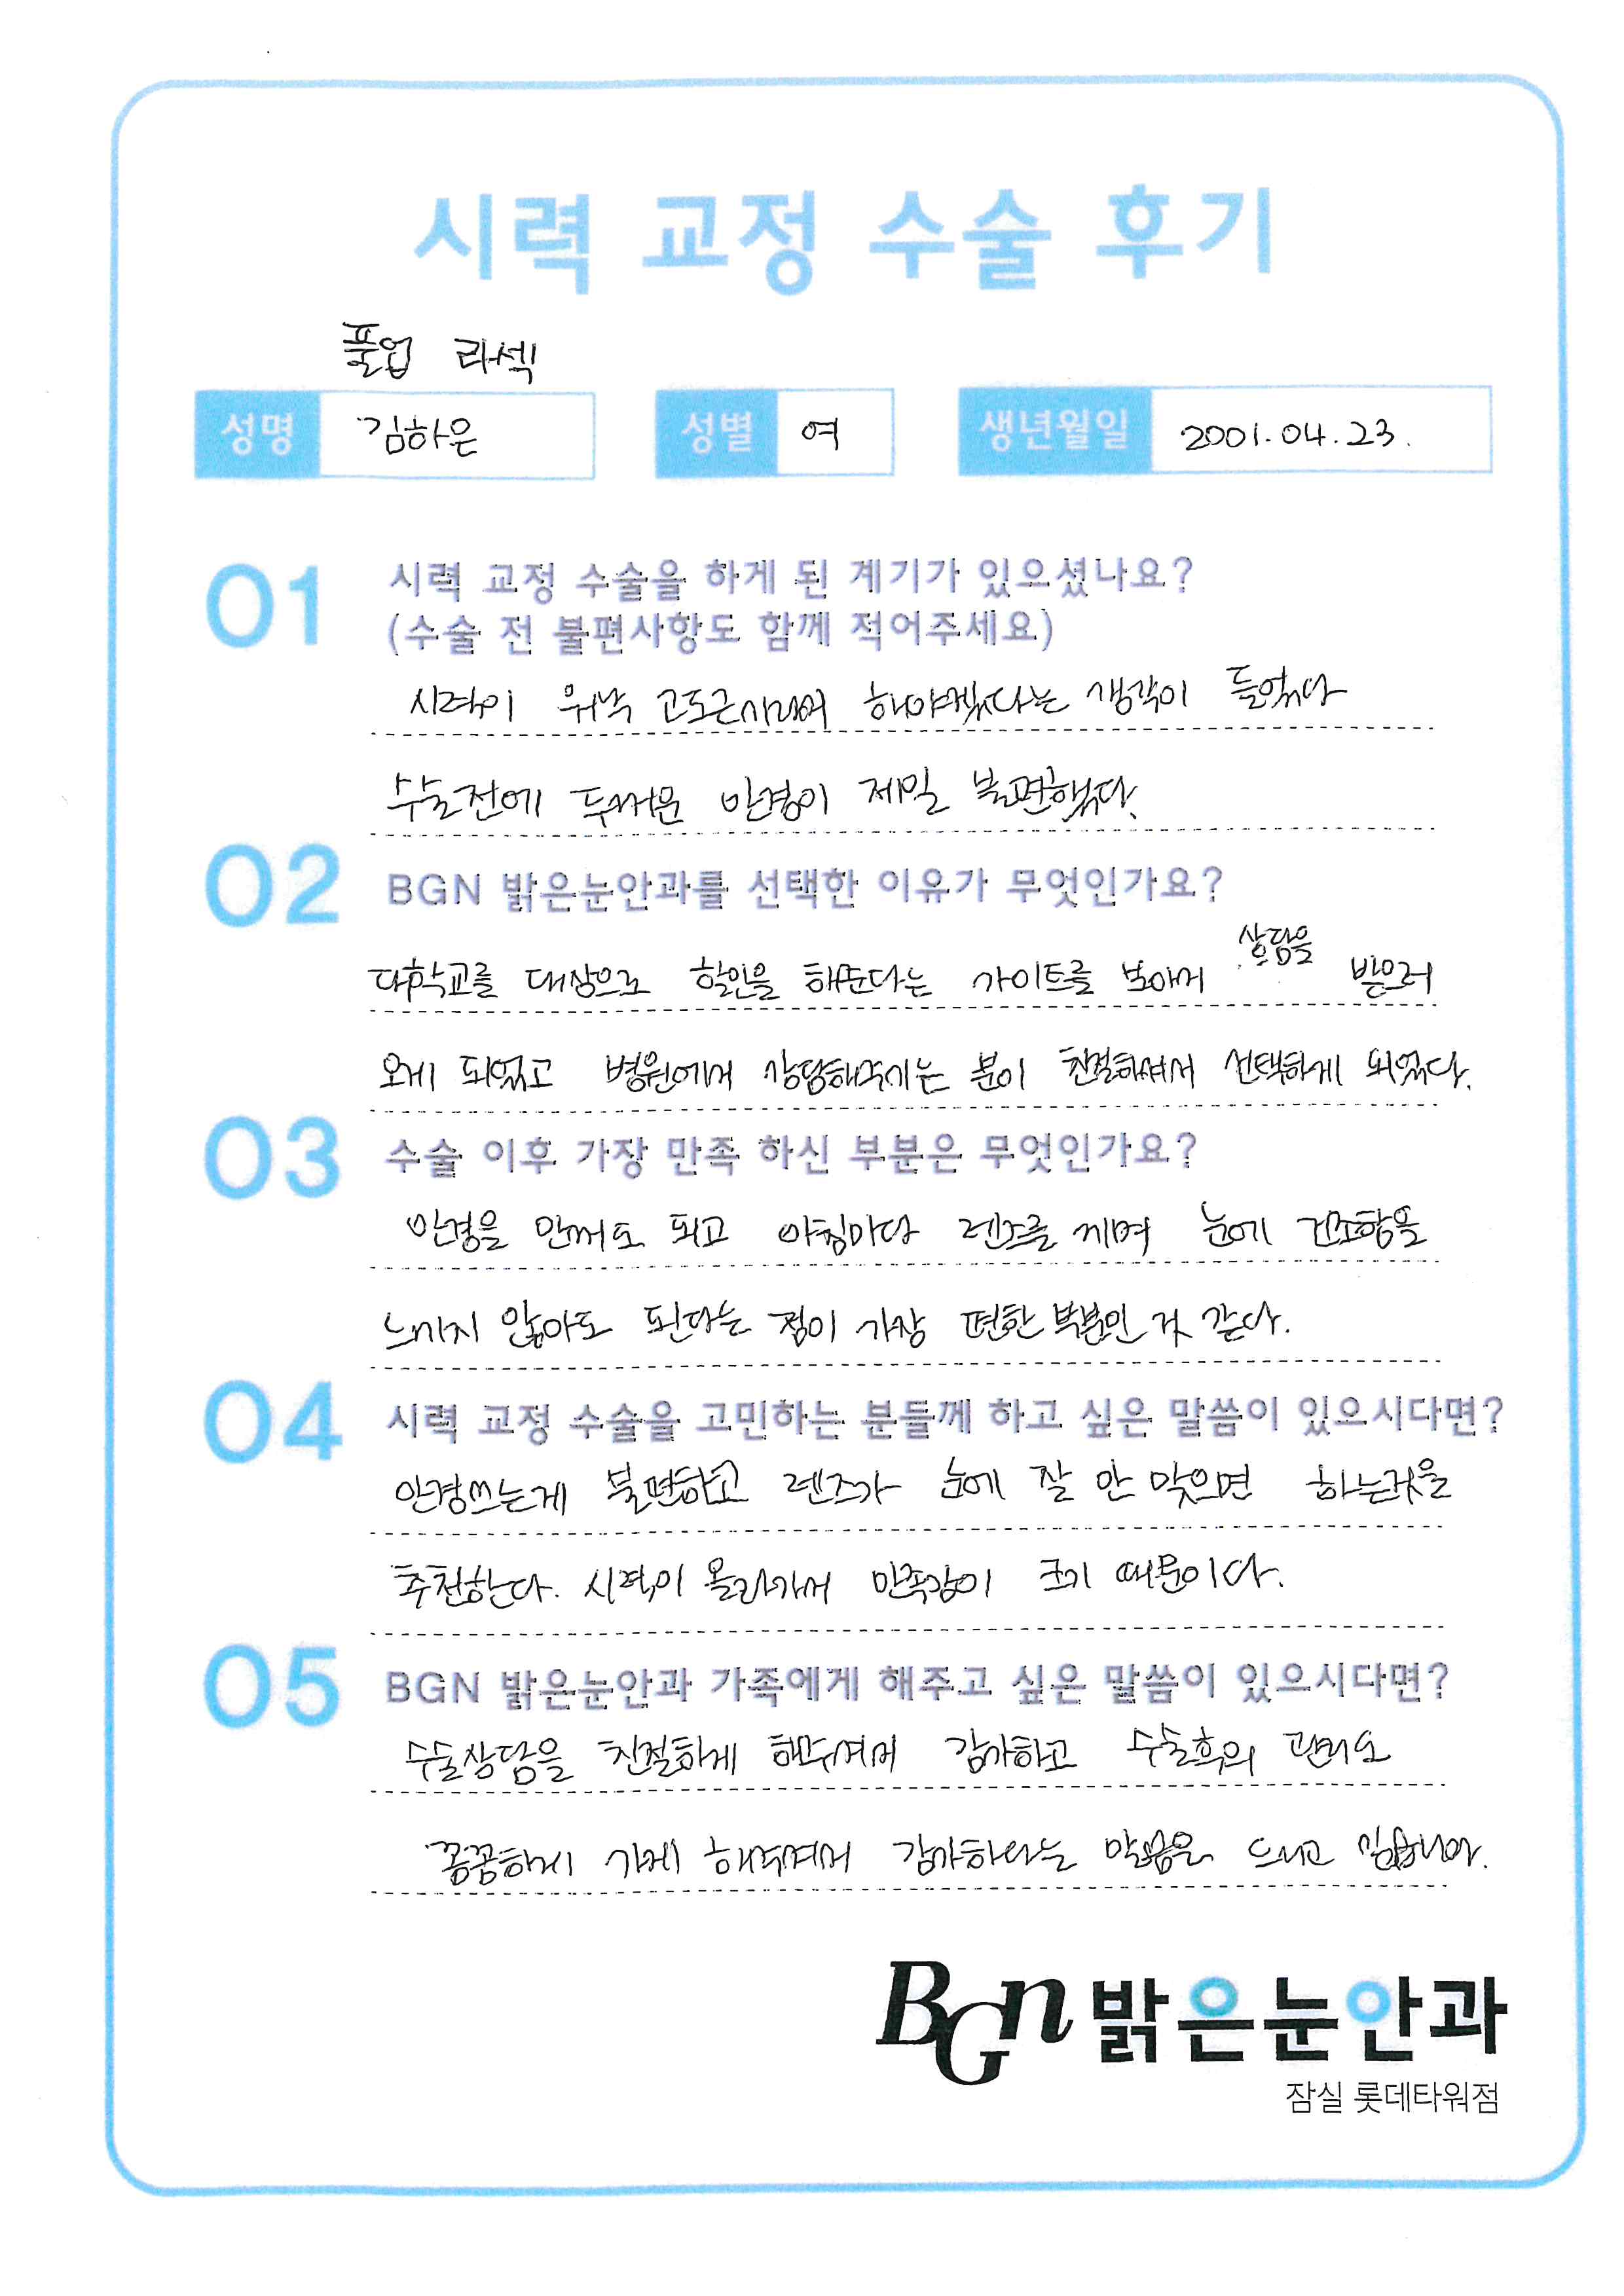 시력 교정 수술 후기
풀업 라섹
성명 김하은 성별 여 생년월일 2001.04.23.
01 시력 교정 수술을 하게 된 계기가 있으셨나요?
(수술 전 불편사항도 함께 적어주세요)
시력이 워낙 고도근시라서 해야겠다는 생각이 들었다
수술전에 두꺼운 안경이 제일 불편했다.
02 BGN 밝은눈안과를 선택한 이유가 무엇인가요?
대학교를 대상으로 할인을 해준다는 사이트를 보아서 상담을 받으러
오게 되었고 병원에서 상담해주시는 분이 친절하셔서 선택하게 되었다.
03 수술 이후 가장 만족 하신 부분은 무엇인가요?
안경을 안써도 되고 아침마다 렌즈를 끼며 눈에 건조함을
느끼지 않아도 된다는 점이 가장 편한 부분인 것 같다.
04 시력 교정 수술을 고민하는 분들께 하고 싶은 말씀이 있으시다면?
안경쓰는게 불편하고 렌즈가 눈에 잘 안 맞으면 하는것을
추천한다. 시력이 올라가서 만족감이 크기 때문이다.
05 BGN 밝은눈안과 가족에게 해주고 싶은 말씀이 있으시다면?
수술상담을 친절하게 해주셔서 감사하고 수술후의 관리도
꼼꼼하게 하게 해주셔서 감사하다는 말씀을 드리고 싶습니다.
BGn 밝은눈안과
잠실 롯데타워점